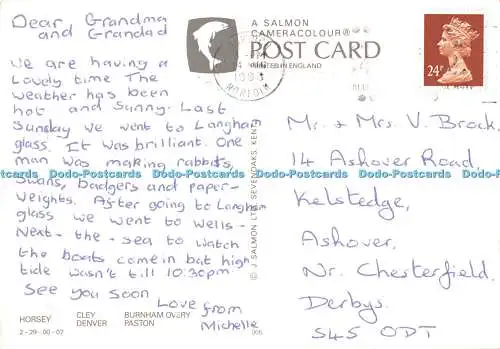 Dear Grandma
and Grandad
We are having a
Lovely time The
weather has been
hot and Sunny. Last
Sunday we went to Langham
glass. It was brilliant. One
man was making rabbits,
Swans, badgers and paper-
weights. After going to Langham
glass we went to Wells-
Next-the-sea to watch
the boats come in bat high
tide wasn't till 10:30pm.
See you soon
Love from
Michelle
HORSEY CLEY BURNHAM OVERY
DENVER PASTON
2-29-00-07
A SALMON
CAMERACOLOUR®
POST CARD
PRINTED IN ENGLAND
NORFOLK
24P
© J. SALMON LTD., SEVENOAKS, KENT
Mr. & Mrs. V. Brock.
14 Ashover Road,
Kelstedge,
Ashover,
Nr. Chesterfield.
Derbys.
S45 ODT
Dodo-Postcards Dodo-Postcards Dodo-Postcards Dodo-Postcards